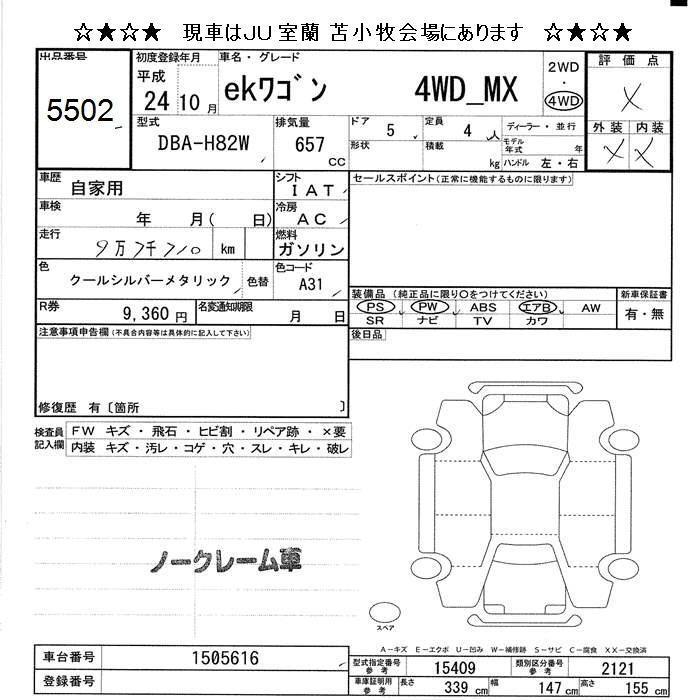 ☆★☆★ 現車はJU室蘭 苫小牧会場にあります ☆★☆★
出品番号
5502
初度登録年月
平成
24 10 月
車名・グレード
ekワゴン 4WD_MX
2WD
・
4WD
評価点
X
外装 内装
X X
型式
DBA-H82W
排気量
657
CC
ドア
5
定員
4 人
形状
積載
kg
ディーラー・並行
モデル年式 年
ハンドル 左・右
車歴
自家用
シフト
IAT
車検
年 月( 日)
冷房
AC
走行
9万7千710 km
燃料
ガソリン
色
クールシルバーメタリック
色替
色コード
A31
R券
9,360 円
名変通知期限
月 日
セールスポイント(正常に機能するものに限ります)
装備品 (純正品に限り○をつけてください)
PS PW ABS エアB AW
SR ナビ TV カワ
新車保証書
有・無
後日品
注意事項申告欄(不具合内容等は具体的に記入して下さい)
修復歴 有〔箇所 〕
検査員記入欄
FW キズ・飛石・ヒビ割・リペア跡・×要
内装 キズ・汚レ・コゲ・穴・スレ・キレ・破レ
ノークレーム車
スペア
A-キズ E-エクボ U-凹み W-補修跡 S-サビ C-腐食 XX-交換済
車台番号
1505616
登録番号
型式指定番号
参考
15409
類別区分番号
参考
2121
車庫証明用
参考
長さ
339 cm
幅
147 cm
高さ
155 cm